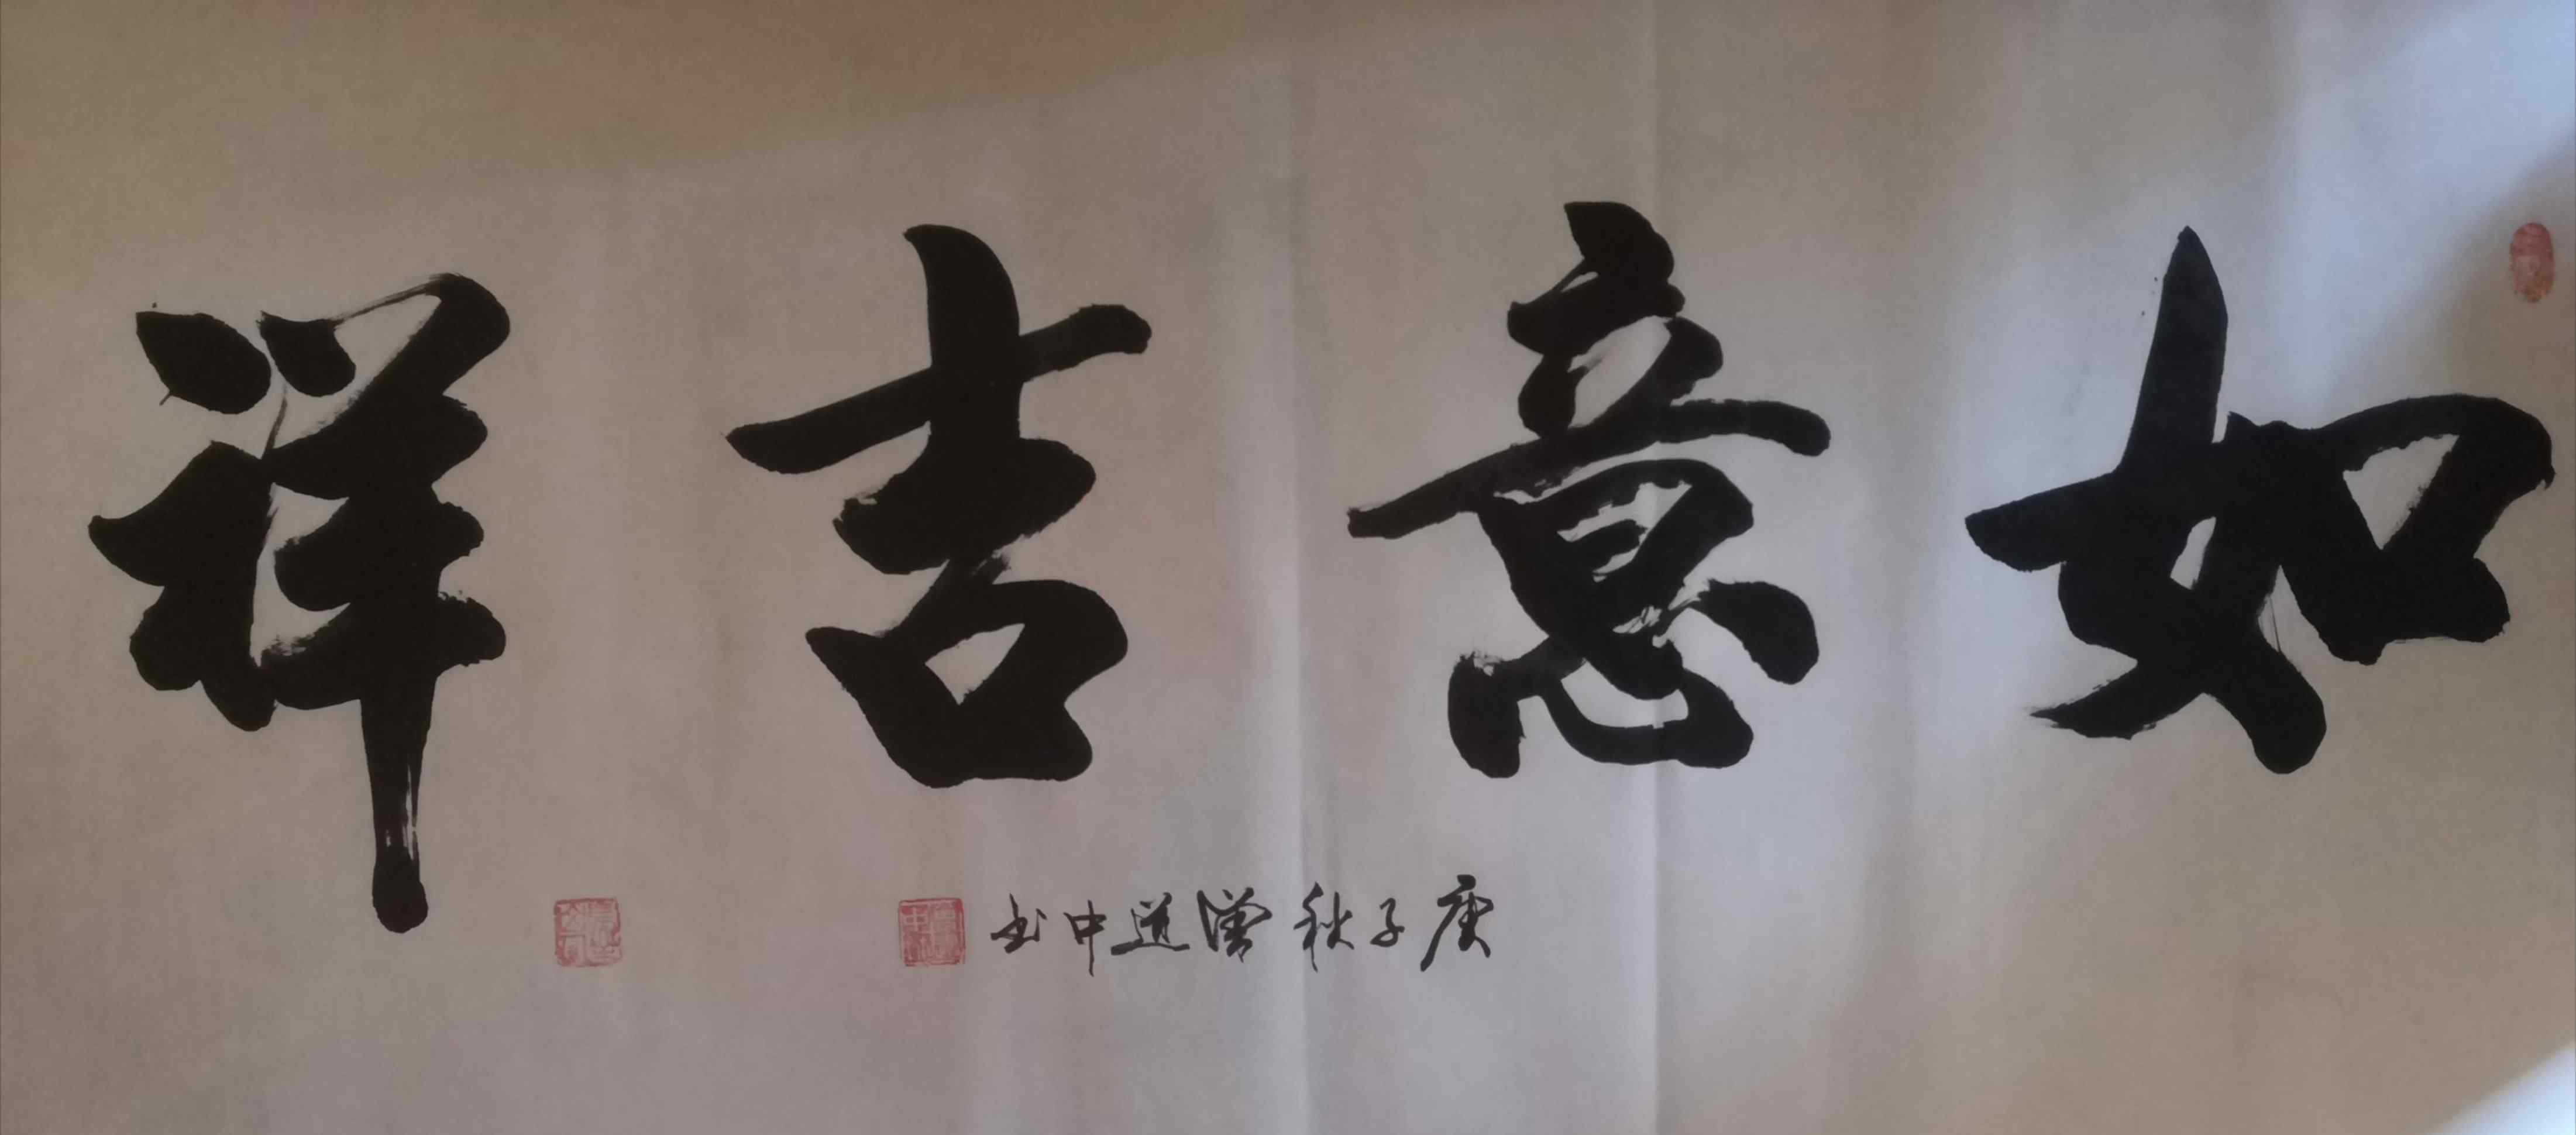 如意吉祥
庚子秋 道中书